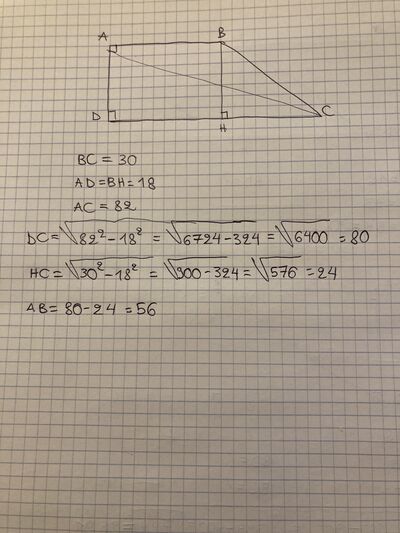 A B
D H C
BC = 30
AD=BH=18
AC = 82
DC=√82²-18² = √6724-324 = √6400 =80
HC=√30²-18² = √900-324 = √576 =24
AB= 80-24 =56